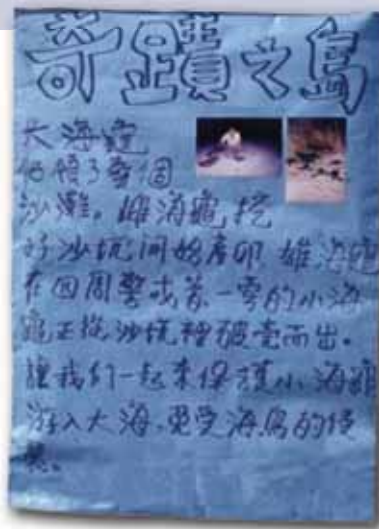 奇蹟之島
大海龜
佔領了整個
沙灘。雌海龜挖
好沙坑開始產卵 雄海龜
在四周警戒着一零的小海
龜正從沙坑種破壳而出。
讓我们一起來保護小海龜
游入大海,免受海鳥的侵
襲。